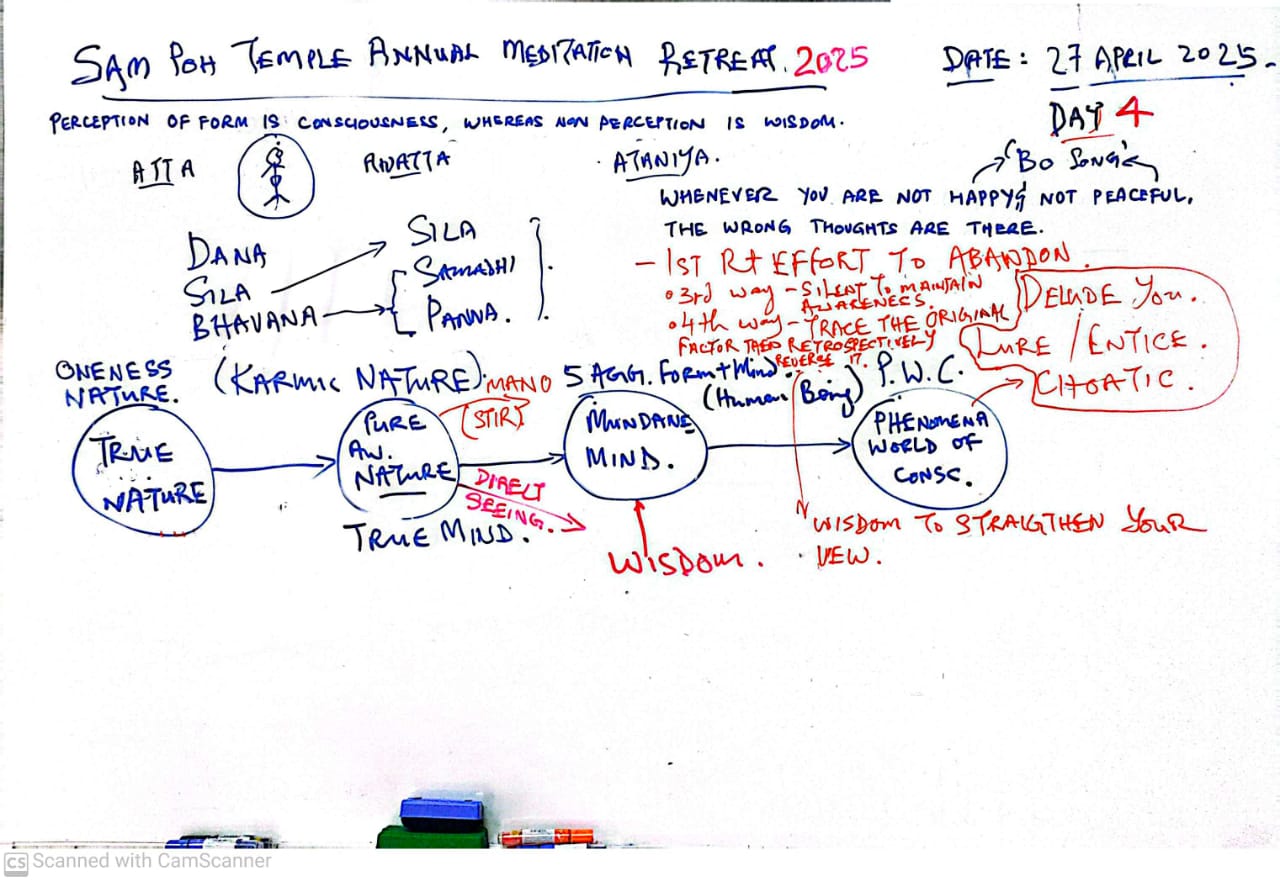 SAM POH TEMPLE ANNUAL MEDITATION RETREAT. 2025
DATE: 27 APRIL 2025.
DAY 4
PERCEPTION OF FORM IS CONSCIOUSNESS, WHEREAS NON PERCEPTION IS WISDOM.
ATTA
ANATTA
ATANIYA.
"BO SONG"
WHENEVER YOU ARE NOT HAPPY & NOT PEACEFUL,
THE WRONG THOUGHTS ARE THERE.
DANA
SILA
BHAVANA
SILA
SAMADHI
PANNA.
- 1ST Rt EFFORT TO ABANDON.
• 3rd way - SILENT TO MAINTAIN
AWARENESS.
• 4th way - TRACE THE ORIGINAL
FACTOR THEN RETROSPECTIVELY
REVERSE IT.
DELUDE YOU.
LURE / ENTICE.
CHOATIC.
ONENESS
NATURE.
(KARMIC NATURE).
MANO
(STIR)
5 AGG. FORM + MIND.
(Human Being)
P.W.C.
TRUE
NATURE
PURE
AW.
NATURE
TRUE MIND.
DIRECT
SEEING.
MUNDANE
MIND.
WISDOM.
PHENOMENA
WORLD OF
CONSC.
WISDOM TO STRAIGTHEN YOUR
VEW.
CS Scanned with CamScanner